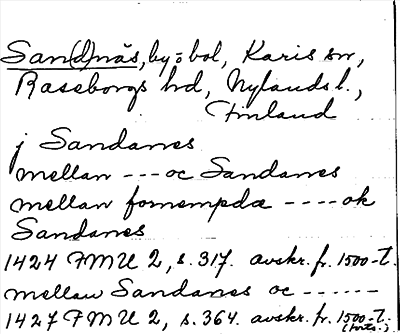 San(d)näs, by o bol, Karis sn,
Raseborgs hd, Nylands l.,
Finland
j Sandanes
mellan --- oc Sandanes
mellan fornempdæ ---- ok
Sandanes
1424 FMU 2, s. 317. avskr. fr. 1500-t.
mellan Sandanes oc ------
1427 FMU 2, s. 364. avskr. fr. 1500-t.
(forts.)